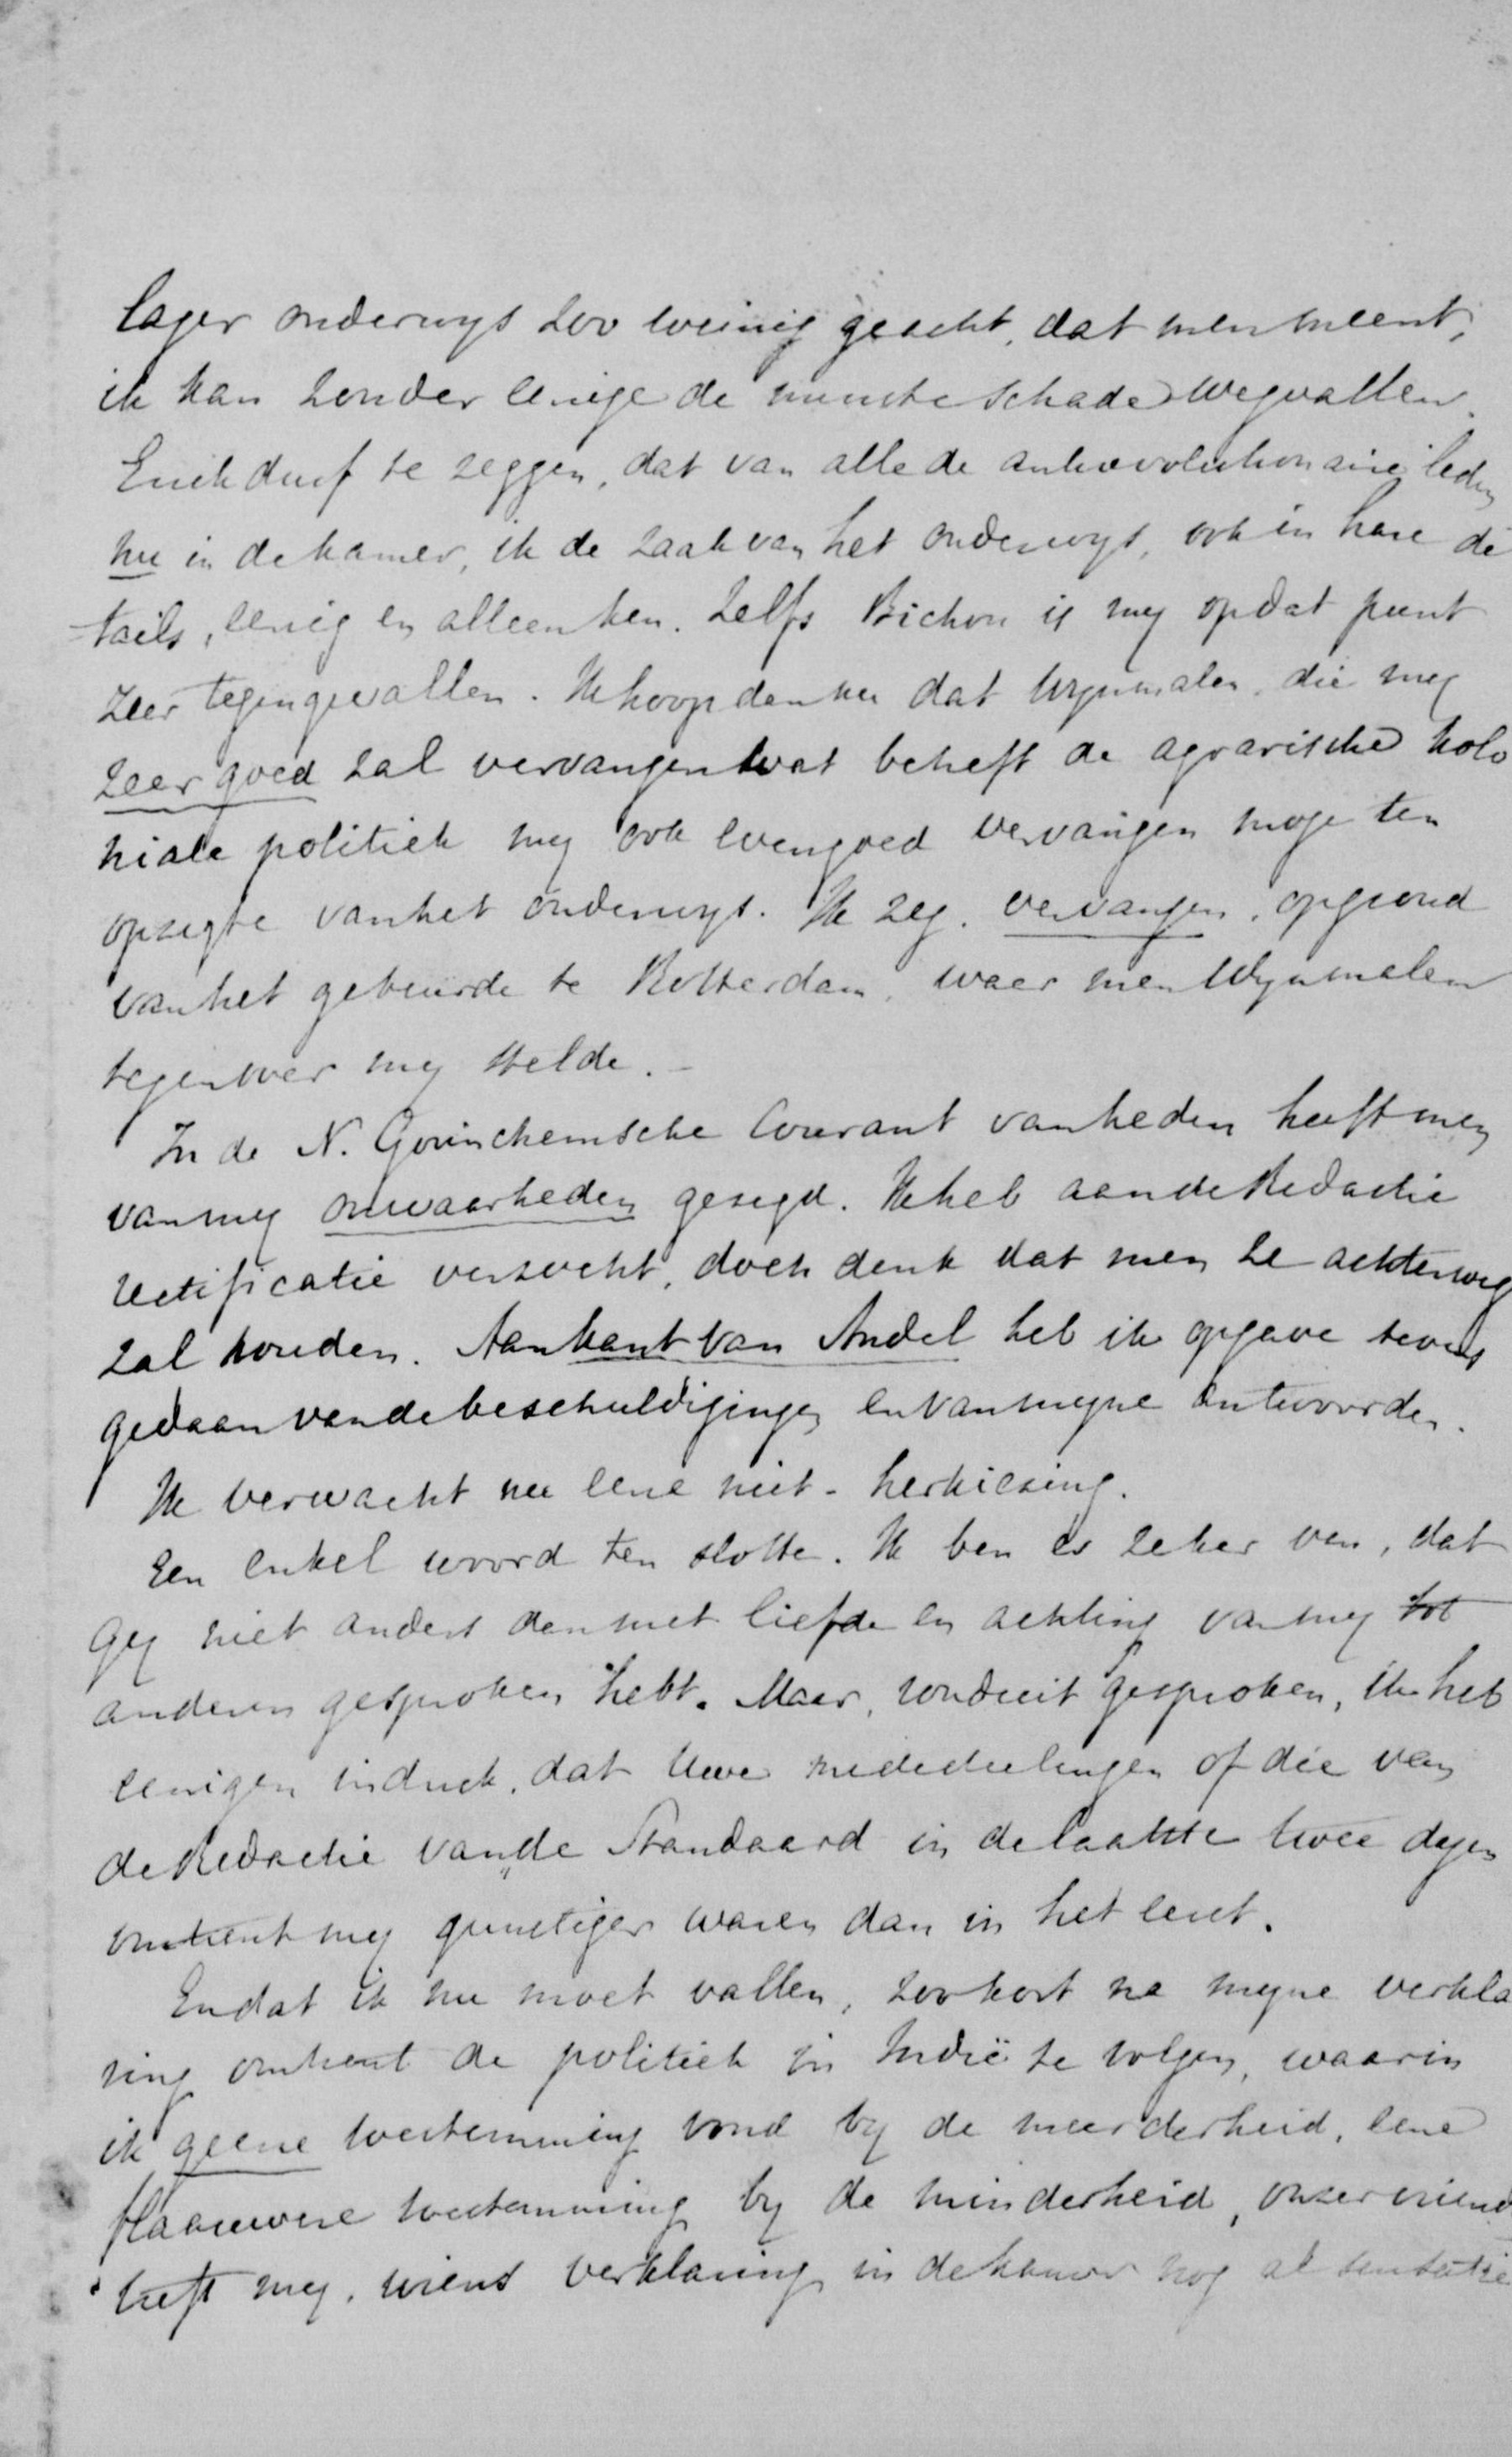 lager onderwijs zoo weinig geacht, dat men meent,
ik kan zonder eenige de minste schade wegvallen.
En ik durf te zeggen, dat van alle de antirevolutionaire leden
nu in de kamer, ik de zaak van het onderwijs, ook in hare de
tails, eenig en alleen ken. Zelfs Bichon is mij op dat punt
zeer tegengevallen. Ik hoop dan nu dat Wijnmalen, die mij
zeer goed zal vervangen wat betreft de agrarische kolo
niale politiek mij ook evengoed vervangen moge ten
opzigte van het onderwijs. Ik zeg. vervangen, op grond
van het gebeurde te Rotterdam, waar men Wijnmalen
tegenover mij stelde. -
In de N. Gorinchemsche Courant van heden heeft men
van mij onwaarheden gezegd. Ik heb aan de Redactie
rectificatie verzocht, doch denk dat men ze achterweg
zal houden. Aan kant van Andel heb ik opgave tevens
gedaan van de beschuldigingen en van mijne antwoorden.
Ik verwacht nu eene niet-herkiezing.
Een enkel woord ten slotte. Ik ben er zeker van, dat
Gij niet anders dan met liefde en achting van mij tot
anderen gesproken hebt. Maar, ronduit gesproken, ik heb
eenigen indruk, dat Uwe mededeelingen of die van
de Redactie van de Standaard in de laatste twee dagen
omtrent mij gunstiger waren dan in het eerst.
En dat ik nu moet vallen, zoo kort na mijne verkla
ring omtrent de politiek in Indië te volgen, waarin
ik geene toestemming vond bij de meerderheid, eene
flaauwere toestemming bij de minderheid, onzer vriend
treft mij, wiens verklaring in de kamer nog al sensatie